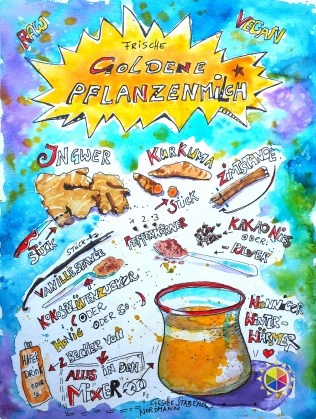 RAW
VEGAN
FRISCHE
GOLDENE
PFLANZENMILCH
INGWER
KURKUMA
ZIMTSTANGE
STÜCK
STÜCK
1 2 3
PFEFFERKÖRNER
KAKAONIBS
ODER
PULVER
STÜCK
VANILLESTANGE
KOKOSBLÜTENZUCKER
(ODER
HONIG ODER SO)
WONNIGER
WINTER-
WÄRMER
HAFER
DRINK
ODER
SO
2 BECHER VOLL
ALLES IN DEN
MIXER
NORDMANN